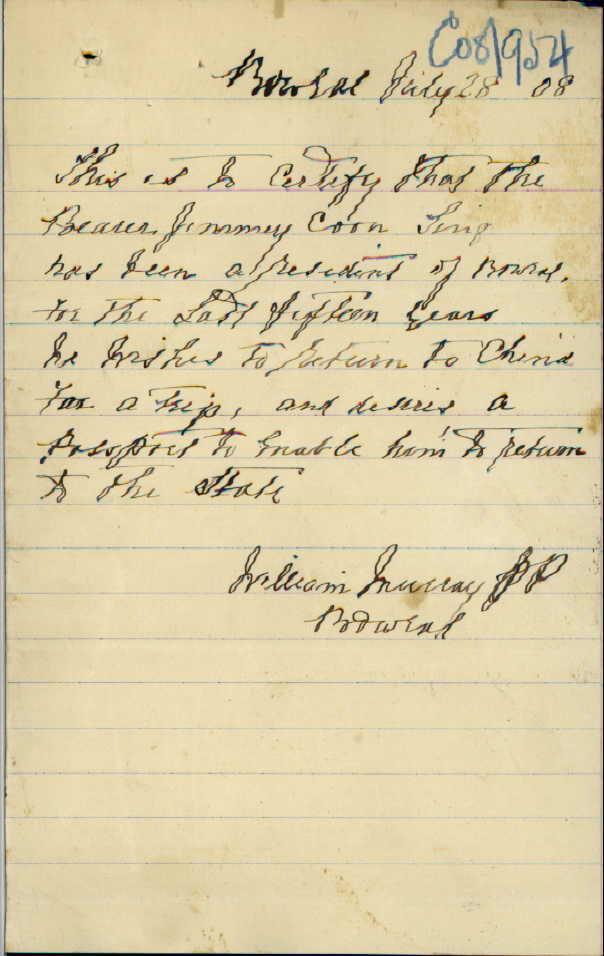 C08/954
Bowral July 28 08
This is to certify that the
Bearer Jimmey Coon Sing
has been a resident of Bowral,
for the Last fifteen years
he wishes to return to China
for a trip, and desires a
Passport to enable him to return
to the State
William Murray JP
Bowral